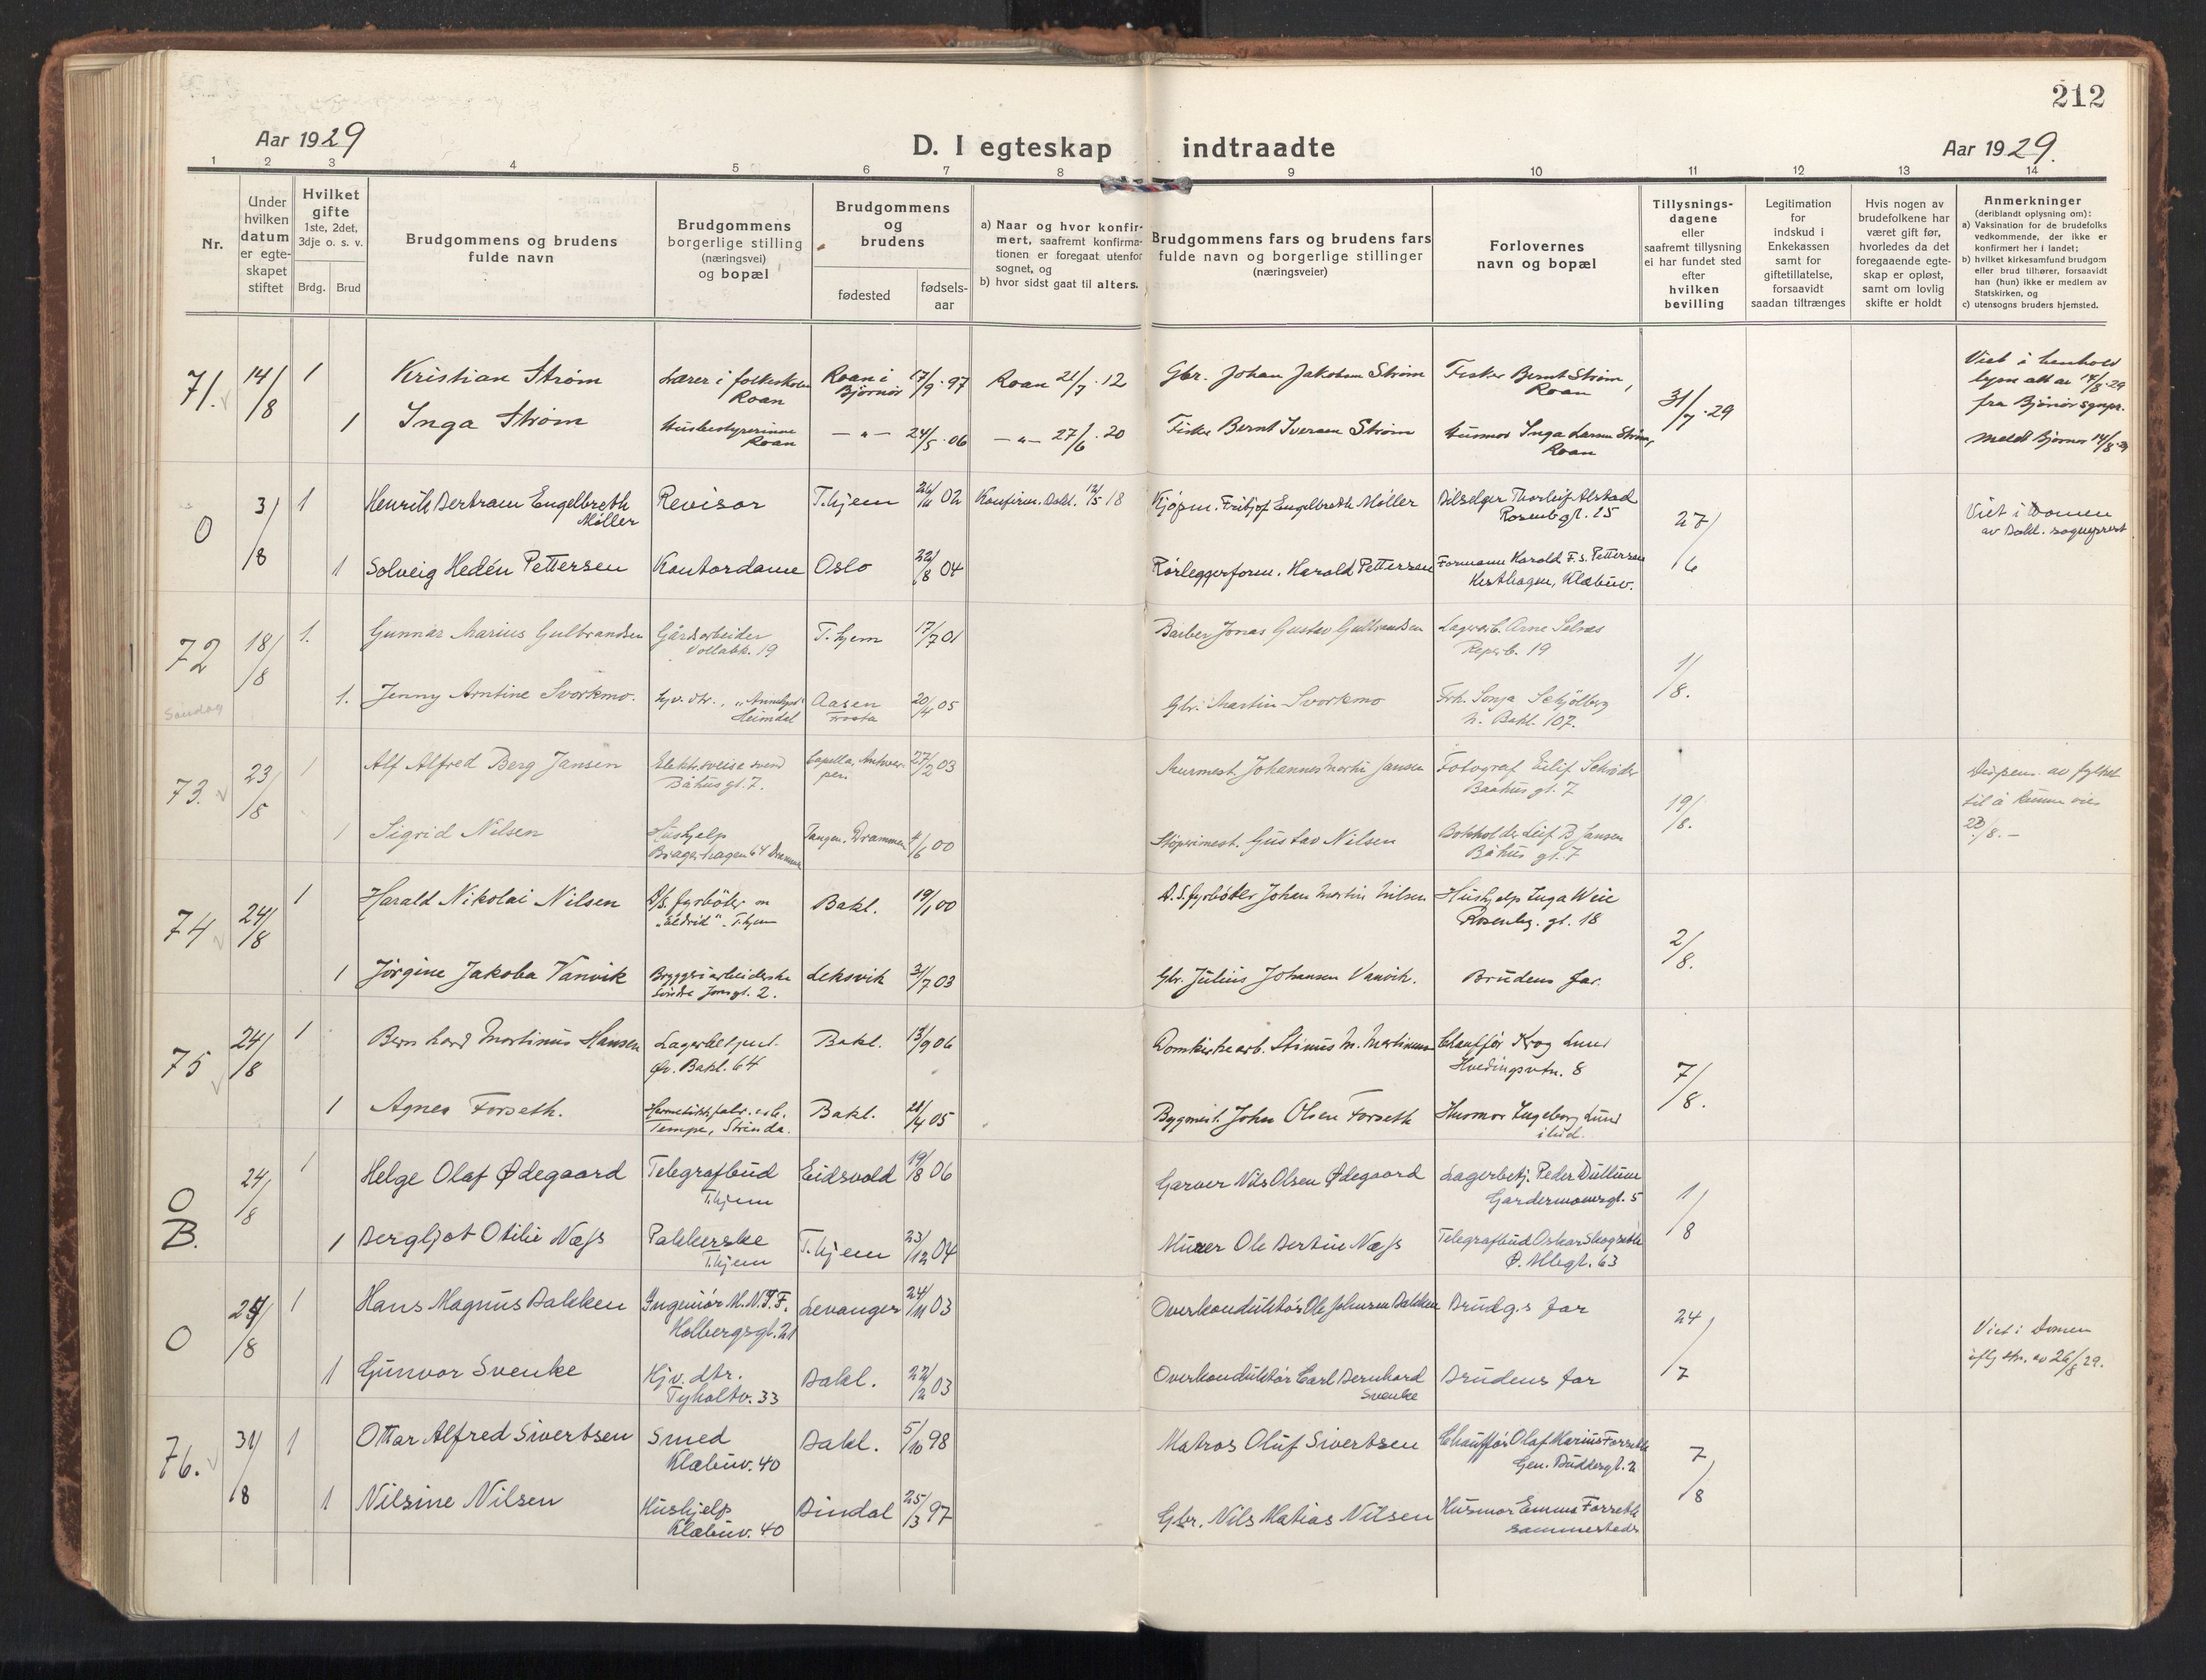 212
Aar 1929
D. I egteskap indtraadte
Aar 1929.
1 2 3 4 5 6 7 8 9 10 11 12 13 14
Nr.
Under hvilken datum er egte-skapet stiftet
Hvilket gifte 1ste, 2det, 3dje o. s. v.
Brdg. Brud
Brudgommens og brudens fulde navn
Brudgommens borgerlige stilling (næringsvei) og bopæl
Brudgommens og brudens
fødested
fødsels-aar
a) Naar og hvor konfir-mert, saafremt konfirma-tionen er foregaat utenfor sognet, og
b) hvor sidst gaat til alters.
Brudgommens fars og brudens fars fulde navn og borgerlige stillinger (næringsveier)
Forlovernes navn og bopæl
Tillysnings-dagene eller saafremt tillysning ei har fundet sted efter hvilken bevilling
Legitimation for indskud i Enkekassen samt for giftetillatelse, forsaavidt saadan tiltrænges
Hvis nogen av brudefolkene har været gift før, hvorledes da det foregaaende egte-skap er opløst, samt om lovlig skifte er holdt
Anmerkninger (deriblandt oplysning om):
a) Vaksination for de brudefolks vedkommende, der ikke er konfirmert her i landet;
b) hvilket kirkesamfund brudgom eller brud tilhører, forsaavidt han (hun) ikke er medlem av Statskirken, og
c) utensogns bruders hjemsted.
71. 14/8 1 Kristian Strøm Lærer i folkeskolen Roan Roan i Bjørnør 17/9.97 Roan 21/7.12 Gbr. Johan Jakobsen Strøm Fisker Bernt Strøm, Roan 31/7.29 Viet i henhold lysn.att. av 14/8.29 fra Bjørnør sognpr.
1 Inga Strøm Husbestyrerinne Roan —"— 24/5.06 —"— 27/6.20 Fisker Bernt Iversen Strøm Husmor Inga Larsen Strøm, Roan Meldt Bjørnør 14/8.29
0 3/8 1 Henrik Bertram Engelbreth Møller Revisor T.hjem 26/11 02 Konfirm. Bakl. 12/5 18 Kjøpm. Fritjof Engelbreth Møller Bilselger Thorleif Alstad Rosenb.gt. 25 27/6 Viet i Domen av Bakl. sogneprest
1 Solveig Hedén Pettersen Kontordame Oslo 22/8 04 Rørleggerform. Harald Pettersen Formann Harald F.S. Pettersen Hesthagen, Klæbuv.
72 18/8 1. Gunnar Marius Gulbrandsen Gårdsarbeider Vollabk. 19 T.hjem 17/7 01 Barber Jonas Gustav Gulbrandsen Lagerarb. Arne Selnæs Reperb. 19 1/8.
Søndag 1. Jenny Arntine Svorkmo. Hjv. dtr., Heimdal Aasen Frosta 20/4 05 Gbr. Martin Svorkmo Frk. Sonja Schjølberg N. Bakl. 107.
73. 23/8 1 Alf Alfred Berg Jansen Elektr.sveise svend Båhus gt. 7. Capella, Antwerpen 27/2 03 Murmest. Johannes Martin Jansen Fotograf Eilif Schrøder Baahus gt. 7 19/8. Dispens. av fylket til å kunne vies 23/8. —
1 Sigrid Nilsen Hushjelp Bragerhagen 64 Drammen Tangen, Drammen 4/6 00 Støperimest. Gustav Nilsen Bokholder Leif B. Jansen Båhus gt. 7
74 24/8 1 Harald Nikolai Nilsen D/S. fyrbøter "Eldrid". T.hjem Bakl. 19/1 00 D.S. fyrbøter Johan Martin Nilsen Hushjelp Inga Weie Rosenbg. gt. 18 2/8.
1 Jørgine Jakoba Vanvik Bryggeriarbeiderske Søndre Jonsgt. 2. Leksvik 31/7 03 Gbr. Julius Johansen Vanvik. Brudens far.
75 24/8 1 Bernhard Martinus Hansen Lagerbetjent Øv. Bakl. 64 Bakl. 13/9 06 Domkirkearb. Stinus M. Martinussen Chauffør Krog Lund Hvedingsvtn. 8 7/8.
1 Agnes Forseth. Hermetikkfabr. arb. Tempe, Strinda. Bakl. 28/4 05 Bygmest. John Olsen Forseth Husmor Ingeborg Lund
0 B. 24/8 1 Helge Olaf Ødegaard Telegrafbud T.hjem Eidsvold 19/8 06 Garver Nils Olsen Ødegaard Lagerbetj. Peder Dullum Gardermoensgt. 5 1/8
1 Bergljot Otilie Næss Pakkerske T.hjem T.hjem 23/12 04 Murer Ole Bertin Næss Telegrafbud Oskar Skogseth Ø. Allegt. 63
0 24/8 1 Hans Magnus Bakken Ingeniør M.N.I.F. Holbergsgt. 21 Levanger 24/11 03 Overkonduktør Ole Johnsen Bakken Brudg.s far 24/7 Viet i Domen iflg skr. av 26/8 29.
1 Gunvor Svenke Hjv. dtr. Tyholtv. 33 Bakl. 22/2 03 Overkonduktør Carl Bernhard Svenke Brudens far
76. 31/8 1 Ottar Alfred Sivertsen Smed Klæbuv. 40 Bakl. 5/10 98 Matros Oluf Sivertsen Chauffør Olaf Marius Forseth Gen. Buddesgt. 2 7/8
1 Nilsine Nilsen Hushjelp Klæbuv. 40 Bindal 25/3 97 Gbr. Nils Matias Nilsen Husmor Emma Forseth sammesteds